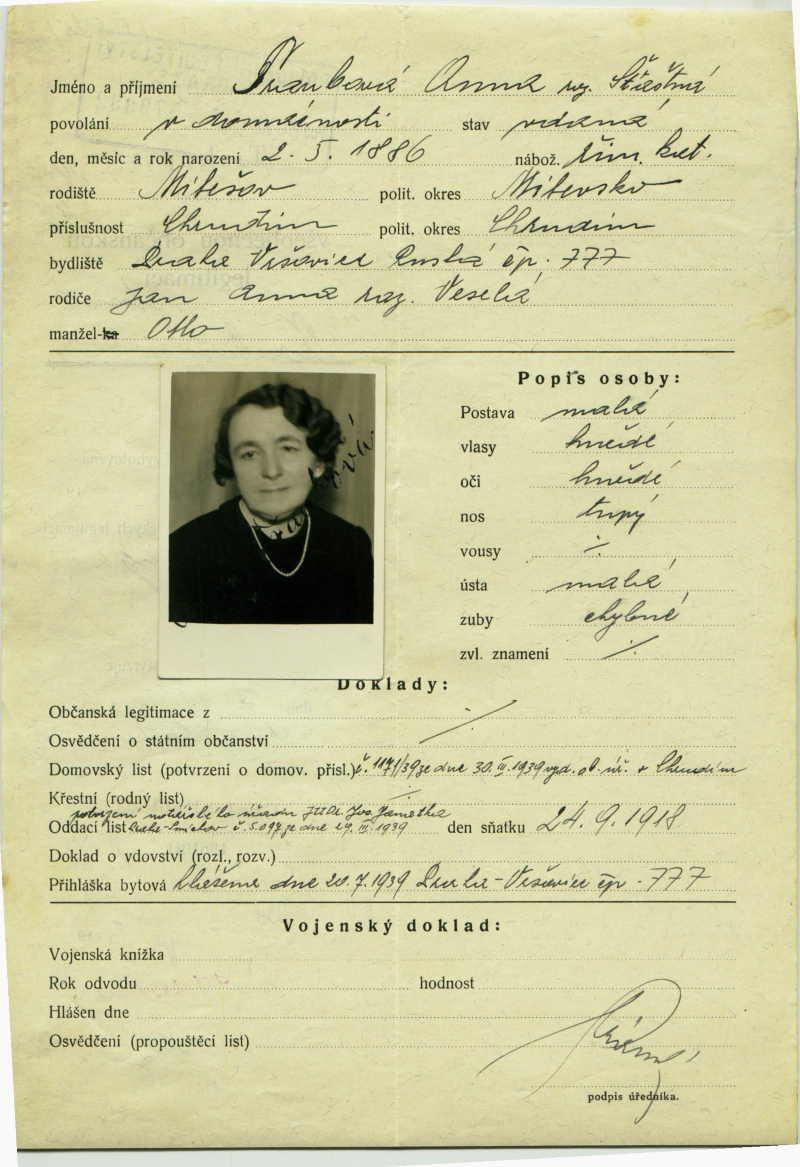 Jméno a příjmení Anna roz. Šťastná
povolání v domácnosti stav vdaná
den, měsíc a rok narození 2. 5. 1886 nábož. řím. kat.
rodiště polit. okres Milevsko
příslušnost Chrudim polit. okres Chrudim
bydliště Praha Vršovice Ruská čp. 777
rodiče Jan Anna roz. Veselá
manžel-ka Otto
Popis osoby:
Postava malá
vlasy hnědé
oči hnědé
nos tupý
vousy ·/·
ústa malá
zuby chybné
zvl. znamení ·/·
Doklady:
Občanská legitimace z
Osvědčení o státním občanství ·/·
Domovský list (potvrzení o domov. přísl.) č. 1171/39 ze dne 30. III. 1939 vyd. ob. úř. v Chrudim
Křestní (rodný list) ·/·
potvrzení notářského úřadu JUDr. Jos. Jametka
Oddací list Praha-Smíchov č. 5.097 ze dne 29. III. 1939 den sňatku 24. 9. 1918
Doklad o vdovství (rozl., rozv.)
Přihláška bytová hlášena dne 20. 7. 1939 Praha-Vršovice čp. 777
Vojenský doklad:
Vojenská knížka
Rok odvodu hodnost
Hlášen dne
Osvědčení (propouštěcí list)
podpis úředníka.